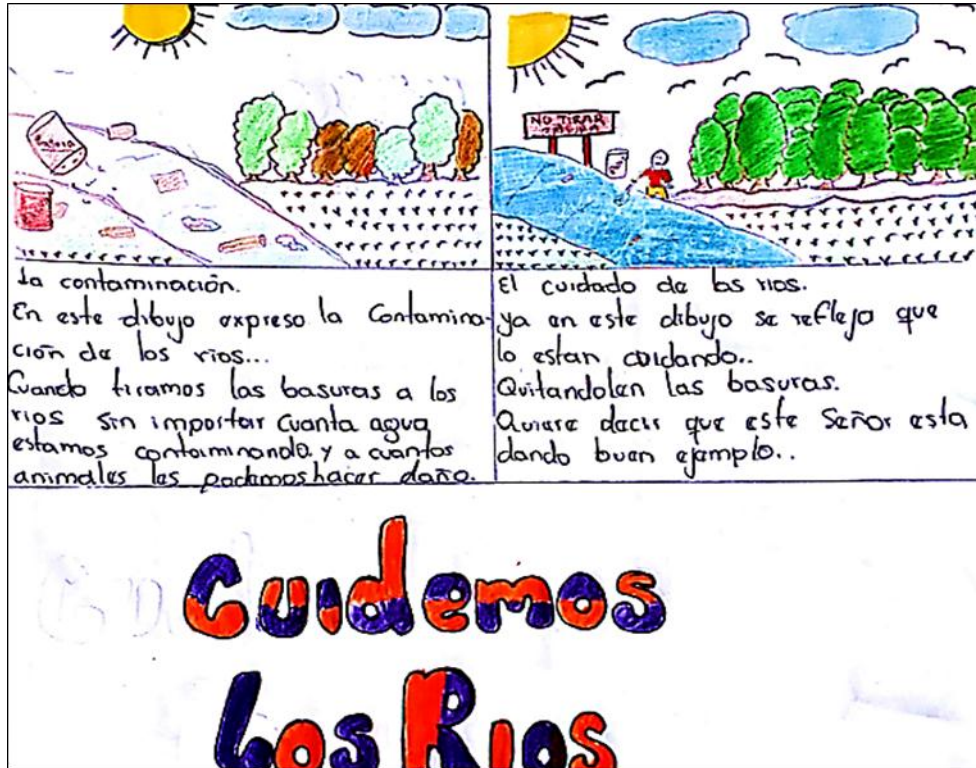 NO TIRAR
BASURA
La contaminación.
En este dibujo expreso la Contamina-
ción de los rios...
Cuando tiramos las basuras a los
rios sin importar Cuanta agua
estamos contaiminando. y a cuantos
animales les podemos hacer daño.
El cuidado de los rios.
ya en este dibujo se refleja que
lo estan cuidando..
Quitandolen las basuras.
Quiere decir que este Señor esta
dando buen ejemplo..
Cuidemos
Los Rios